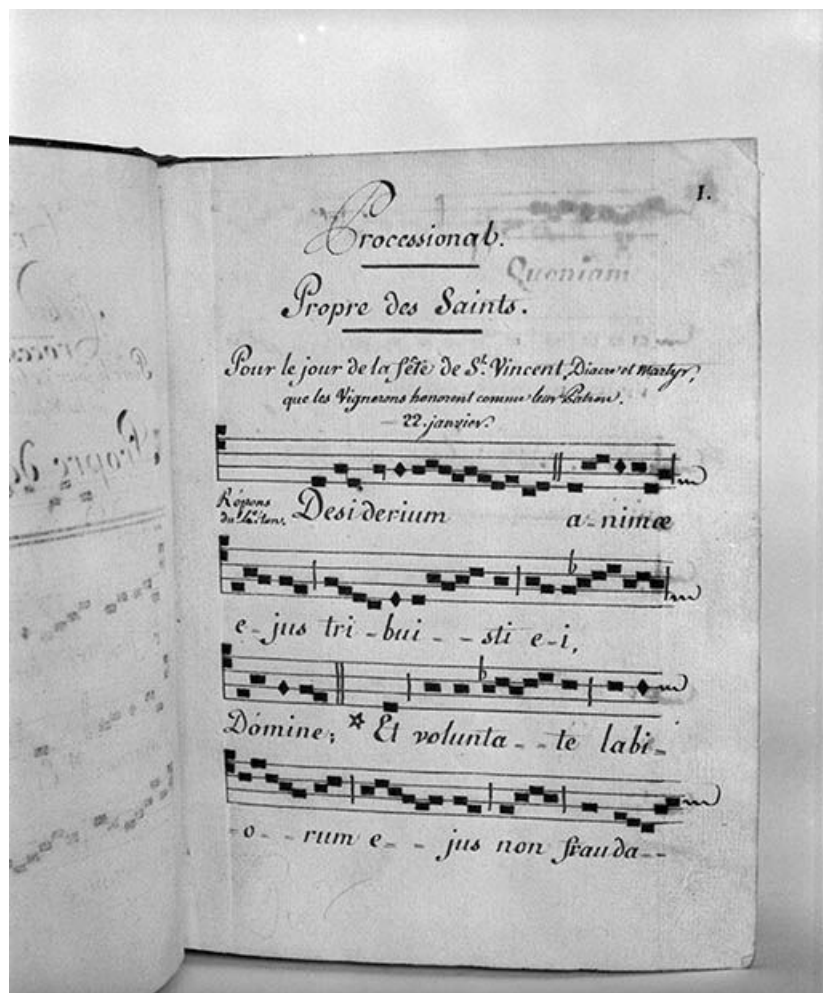 1.
Processional.
Propre des Saints.
Pour le jour de la fête de St. Vincent, Diacre et Martyr,
que les Vignerons honorent comme leur Patron.
22. janvier.
Répons
Desiderium a-nimæ
e-jus tri-bui--sti e-i,
Dómine; * Et volunta--te labi-
-o--rum e--jus non frauda--
Quoniam